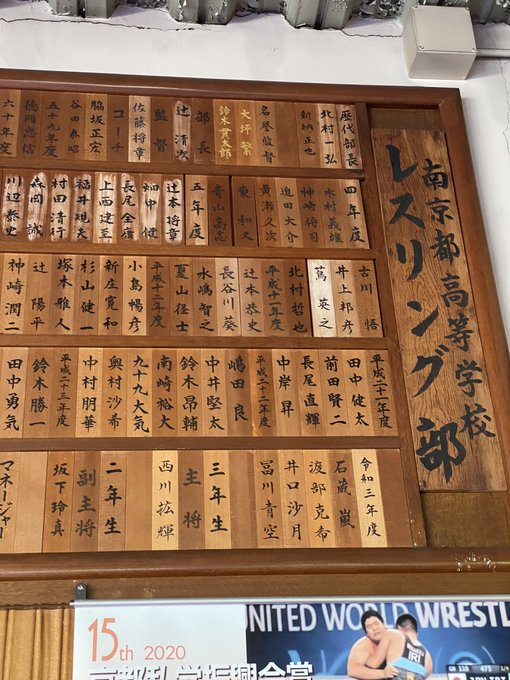 南京都高等学校
レスリング部
歴代部長
北村一弘
新納正也
名誉監督
大坪繁
鈴木貫太郎
部長
辻清次
監督
佐藤将章
コーチ
脇坂正宏
谷田泰昭
五十九年度
徳岡忠信
六十年度
四年度
木村義雄
神崎将司
迫田大介
黄瀬久次
東和文
青山高志
五年度
辻本将章
畑中健
長尾全廣
上西建至
福井規夫
村田清行
森岡誠
川辺泰史
古川悟
井上邦彦
蔦英之
北村哲也
平成十一年度
辻本恭史
長谷川葵
水嶋智之
夏山径士
平成十二年度
小島暢彦
新庄寛和
杉山健一
塚本雅人
辻陽平
神崎潤二
平成二十一年度
田中健太
前田賢二
長尾直輝
中岸昇
平成二十二年度
嶋田良
中井堅太
鈴木昂輔
南崎裕大
九十九大気
奥村沙希
中村朋華
平成二十三年度
鈴木勝一
田中勇気
令和三年度
石蔵嵐
渡部克希
井口沙月
冨川青空
三年生
主将
西川拡輝
二年生
副主将
坂下玲真
マネージャー
15th 2020
UNITED WORLD WRESTL
GR 110
475
IRI